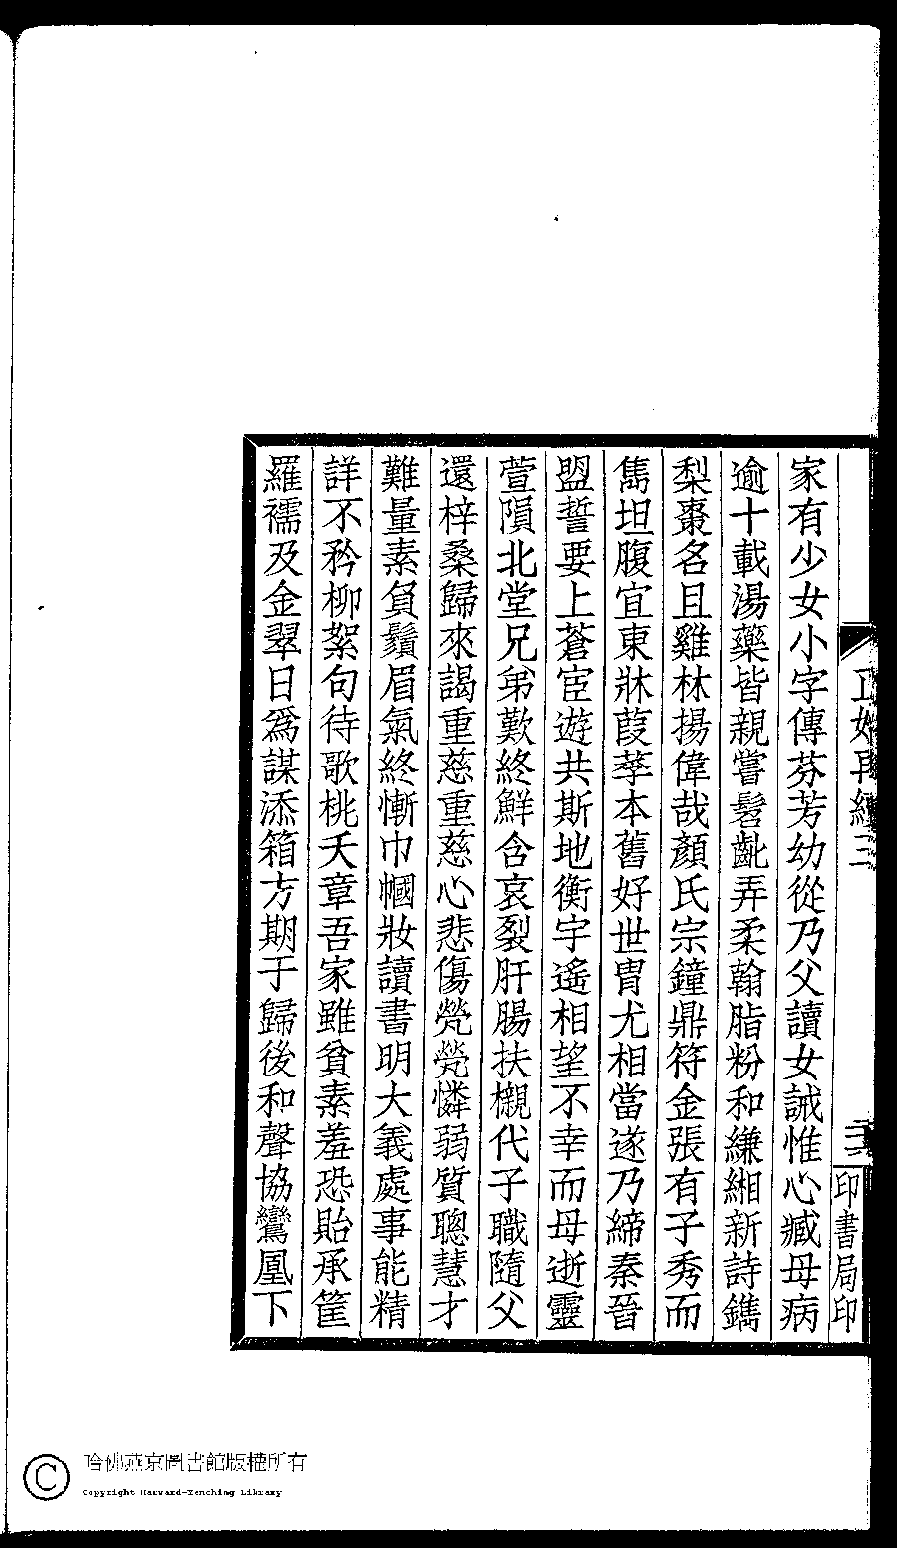 家有少女小字傳芬芳幼從乃父讀女誡惟心臧母病
逾十載湯藥皆親嘗髫齔弄柔翰脂粉和縑緗新詩鐫
梨棗名且雞林揚偉哉顏氏宗鐘鼎符金張有子秀而
雋坦腹宜東牀葭莩本舊好世胄尤相當遂乃締秦晉
盟誓要上蒼宦遊共斯地衡宇遙相望不幸而母逝靈
萱隕北堂兄弟歎終鮮含哀裂肝腸扶櫬代子職隨父
還梓桑歸來謁重慈重慈心悲傷煢煢憐弱質聰慧才
難量素負鬚眉氣終慚巾幗妝讀書明大義處事能精
詳不矜柳絮句待歌桃夭章吾家雖貧素羞恐貽承筐
羅襦及金翠日為謀添箱方期于歸後和聲協鸞凰下
正始再續三
二
印書局印
哈佛燕京圖書館版權所有
Copyright Harvard-Yenching Library